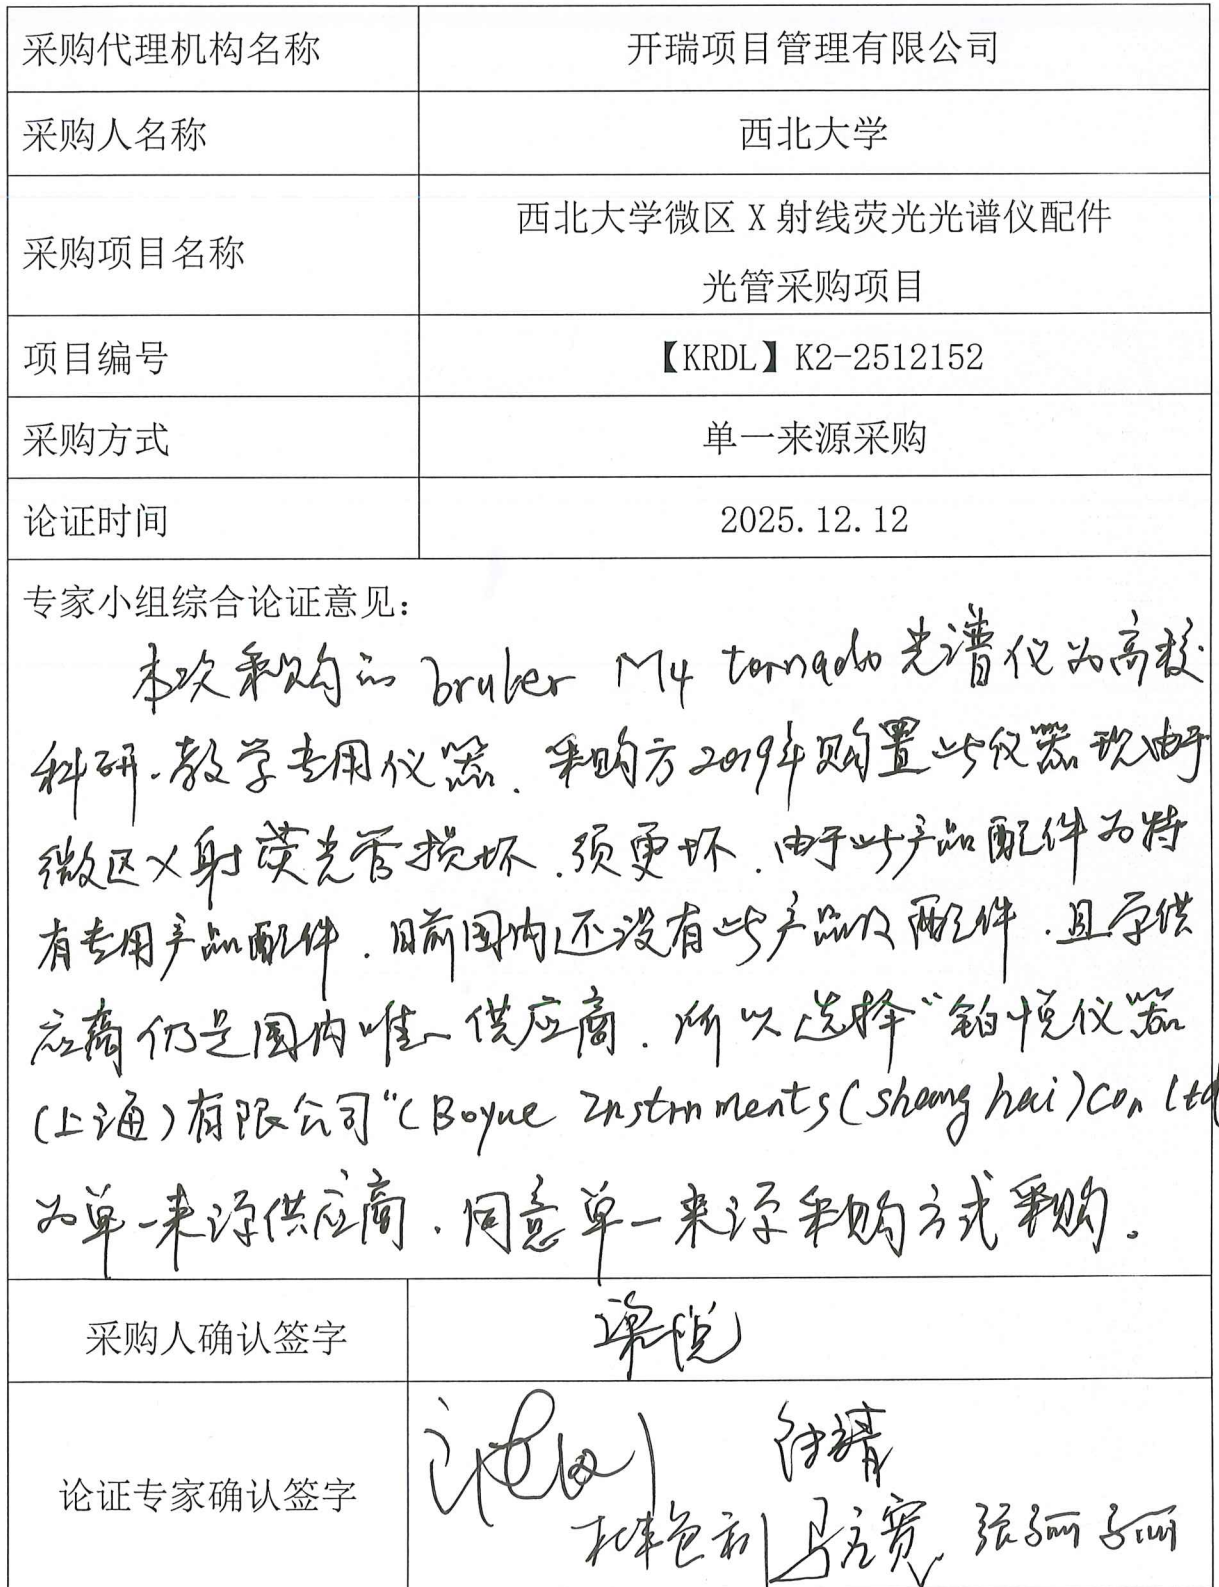 采购代理机构名称 开瑞项目管理有限公司
采购人名称 西北大学
采购项目名称 西北大学微区 X 射线荧光光谱仪配件
光管采购项目
项目编号 【KRDL】K2-2512152
采购方式 单一来源采购
论证时间 2025.12.12
专家小组综合论证意见：
本次采购的 bruker M4 tornado 光谱仪为高校
科研、教学专用仪器。采购方2019年购置此仪器现由于
微区X射荧光管损坏，须更坏，由于此产品配件为特
有专用产品配件，目前国内还没有此产品及配件，且原供
应商仍是国内唯一供应商，所以选择“铂悦仪器
(上海)有限公司“(Boyue Instruments(shanghai)Con Ltd
为单一来源供应商，同意单一来源采购方式采购。
采购人确认签字 梁悦
论证专家确认签字